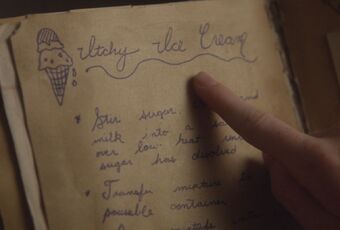 Itchy Ice Cream
* Stir sugar, and
milk into a
over low heat
sugar has disolved
* Transfer mixture to
pourable container